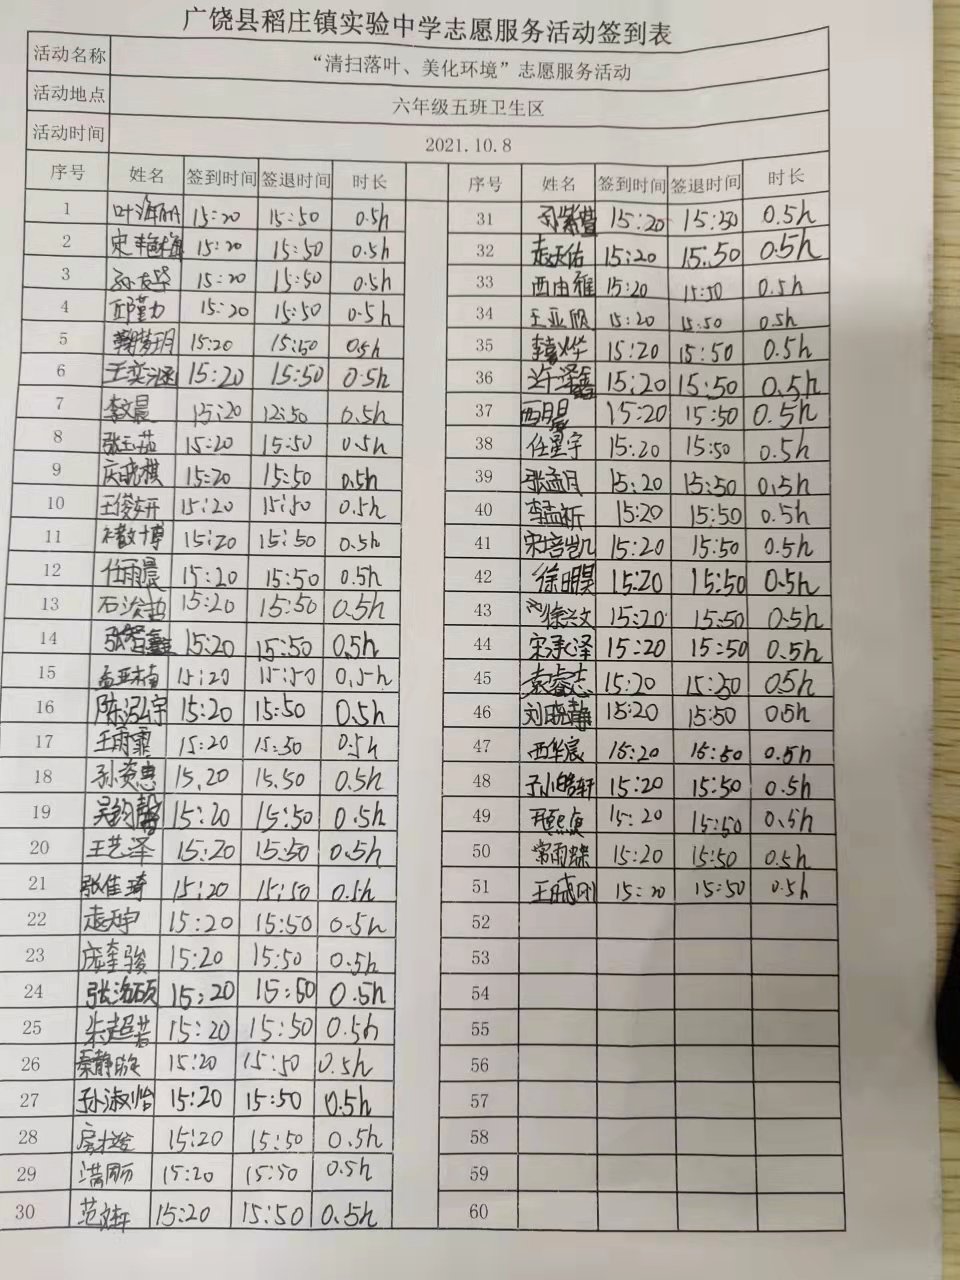 广饶县稻庄镇实验中学志愿服务活动签到表
活动名称 “清扫落叶、美化环境”志愿服务活动
活动地点 六年级五班卫生区
活动时间 2021.10.8
序号 姓名 签到时间 签退时间 时长 序号 姓名 签到时间 签退时间 时长
1 15:20 15:50 0.5h 31 孙紫萱 15:20 15:50 0.5h
2 宋艳梅 15:20 15:50 0.5h 32 赵天佑 15:20 15:50 0.5h
3 15:20 15:50 0.5h 33 西由雅 15:20 15:50 0.5h
4 邱瑾力 15:20 15:50 0.5h 34 王亚欣 15:20 15:50 0.5h
5 15:20 15:50 0.5h 35 李嘉烨 15:20 15:50 0.5h
6 王奕涵 15:20 15:50 0.5h 36 许泽鑫 15:20 15:50 0.5h
7 李文晨 15:20 12:50 0.5h 37 西明昊 15:20 15:50 0.5h
8 张玉茹 15:20 15:50 0.5h 38 任星宇 15:20 15:50 0.5h
9 庆晓祺 15:20 15:50 0.5h 39 张孟月 15:20 15:50 0.5h
10 王俊妍 15:20 15:50 0.5h 40 李孟昕 15:20 15:50 0.5h
11 15:20 15:50 0.5h 41 宋培凯 15:20 15:50 0.5h
12 任雨晨 15:20 15:50 0.5h 42 徐明昊 15:20 15:50 0.5h
13 15:20 15:50 0.5h 43 徐兴文 15:20 15:50 0.5h
14 15:20 15:50 0.5h 44 宋承泽 15:20 15:50 0.5h
15 孟亚楠 15:20 15:50 0.5h 45 袁睿志 15:20 15:50 0.5h
16 陈泓宇 15:20 15:50 0.5h 46 刘晓静 15:20 15:50 0.5h
17 王雨霏 15:20 15:50 0.5h 47 西华宸 15:20 15:50 0.5h
18 孙资惠 15.20 15.50 0.5h 48 孙皓轩 15:20 15:50 0.5h
19 吴钧馨 15:20 15:50 0.5h 49 15:20 15:50 0.5h
20 王艺泽 15:20 15:50 0.5h 50 常雨 15:20 15:50 0.5h
21 张佳琦 15:20 15:50 0.5h 51 15:20 15:50 0.5h
22 赵天宇 15:20 15:50 0.5h 52
23 庞奎骏 15:20 15:50 0.5h 53
24 张浩硕 15:20 15:50 0.5h 54
25 朱超若 15:20 15:50 0.5h 55
26 秦静旋 15:20 15:50 0.5h 56
27 孙淑怡 15:20 15:50 0.5h 57
28 15:20 15:50 0.5h 58
29 15:20 15:50 0.5h 59
30 范文轩 15:20 15:50 0.5h 60